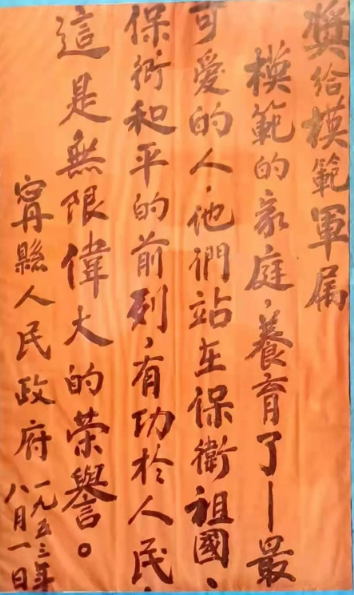 奬给模範軍属
模範的家庭，養育了——最
可愛的人，他們站在保衛祖國、
保衛和平的前列，有功於人民，
這是無限偉大的荣譽。
縣人民政府
一九五三年
八月一日